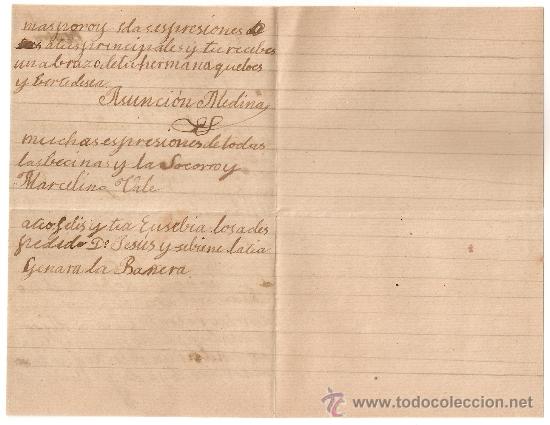 mas por oy i das espresiones de
tus atas principales y tu recebes
un abrazo de tu hermana que lo es
y berte desea
Asunción Medina
muchas espresiones de todas
las becinas y la Socorro y
Marcelina Vale
a tio felis y tia Eusebia los a des
pedido Dº Jesus y si biene la tia
Genara la Banera
www.todocoleccion.net